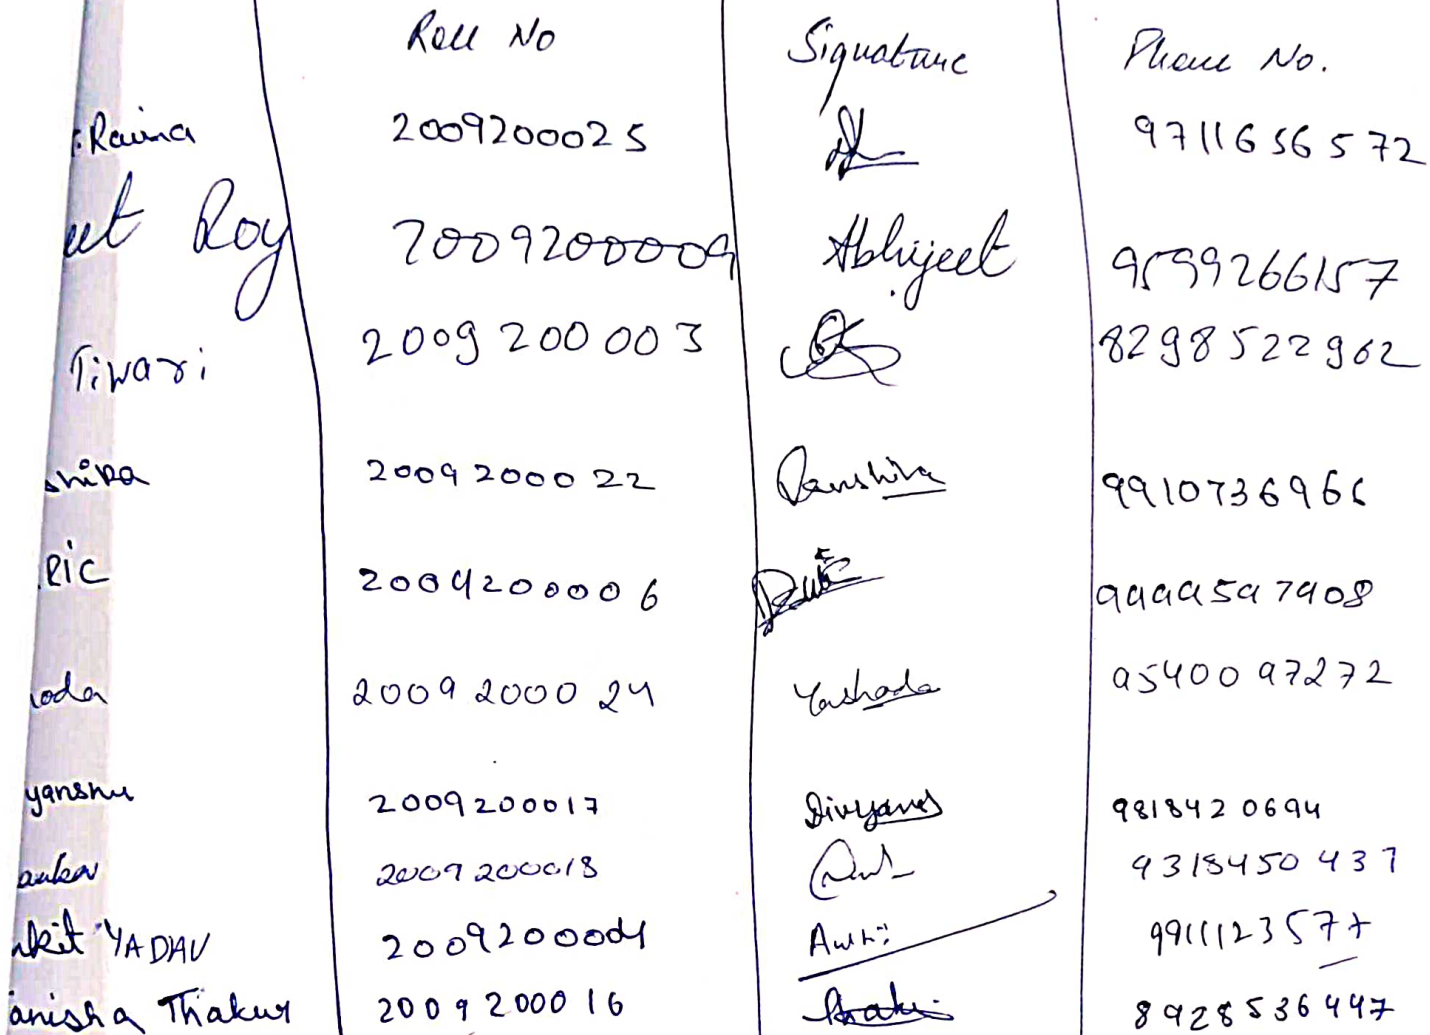 Roll No Signature Phone No.
Raina 2009200025 9711656572
Roy 2009200009 Abhijeet 9599266157
Tiwari 2009200003 8298522962
2009200022 Vanshika 9910736966
2009200006 9999597908
2009200024 Yashoda 9540097272
yanshu 2009200017 Divyansh 9818420694
2009200018 9318450437
nkit YADAV 2009200004 9911123577
anisha Thakur 2009200016 8928536447